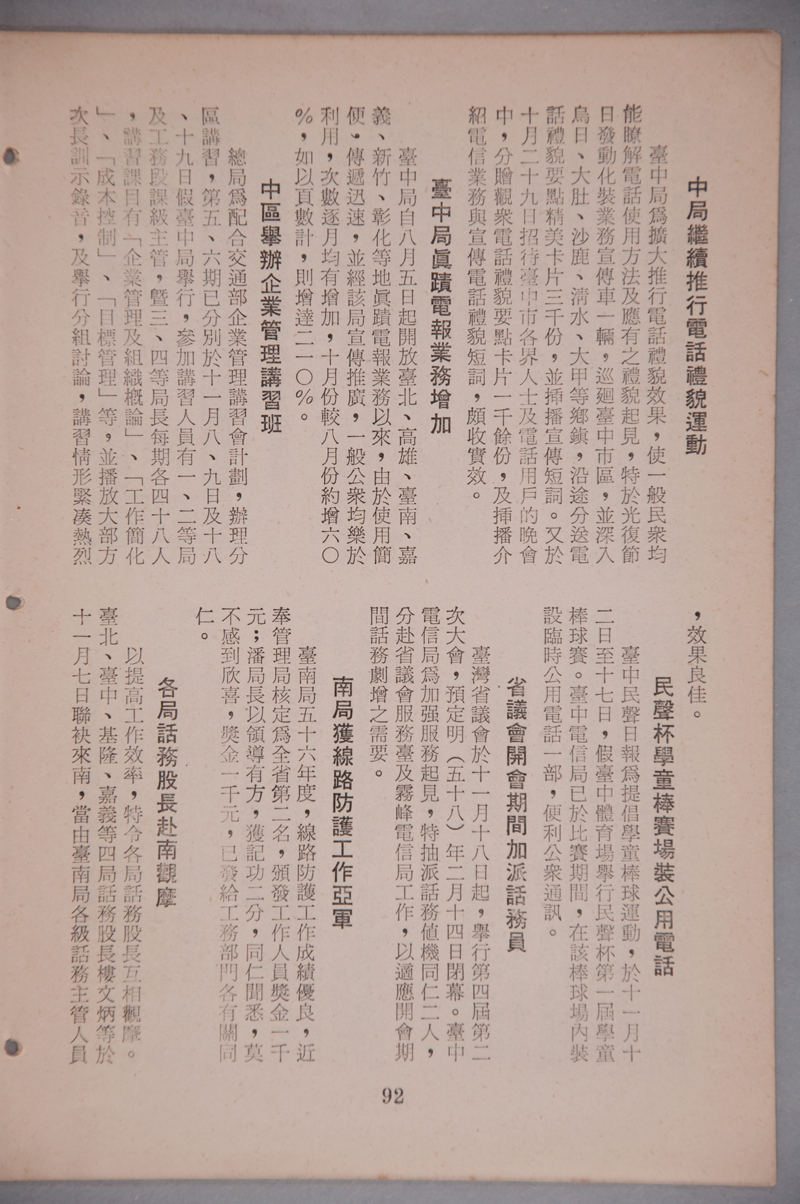 中局繼續推行電話禮貌運動
臺中局爲擴大推行電話禮貌效果，使一般民衆均
能瞭解電話使用方法及應有之禮貌起見，特於光復節
日發動化裝業務宣傳車一輛，巡廻臺中市區，並深入
烏日、大肚、沙鹿、淸水、大甲等鄉鎭，沿途分送電
話禮貌要點精美卡片三千份，並揷播宣傳短詞。又於
十月二十九日招待臺中市各界人士及電話用戶的晚會
中，分贈觀衆電話禮貌要點卡片一千餘份，及揷播介
紹電信業務與宣傳電話禮貌短詞，頗收實效。
臺中局眞蹟電報業務增加
臺中局自八月五日起開放臺北、高雄、臺南、嘉
義、新竹、彰化等地眞蹟電報業務以來，由於使用簡
便，傳遞迅速，並經該局宣傳推廣，一般公衆均樂於
利用，次數逐月均有增加，十月份較八月份約增六〇
%，如以頁數計，則增達二一〇%。
中區舉辦企業管理講習班
總局爲配合交通部企業管理講習會計劃，辦理分
區講習，第五、六期已分別於十一月八、九日及十八
、十九日假臺中局舉行，參加講習人員有一、二等局
及工務段課級主管，曁三、四等局長每期各四十八人
，講習課目有「企業管理及組織槪論」、「工作簡化
」、「成本控制」、「目標管理」等，並播放大部方
次長訓示錄音，及舉行分組討論，講習情形緊湊熱烈
，效果良佳。
民聲杯學童棒賽場裝公用電話
臺中民聲日報爲提倡學童棒球運動，於十一月十
二日至十七日，假臺中體育場舉行民聲杯第一屆學童
棒球賽。臺中電信局已於比賽期間，在該棒球場內裝
設臨時公用電話一部，便利公衆通訊。
省議會開會期間加派話務員
臺灣省議會於十一月十八日起，舉行第四屆第二
次大會，預定明（五十八）年二月十四日閉幕。臺中
電信局爲加强服務起見，特抽派話務値機同仁二人，
分赴省議會服務臺及霧峰電信局工作，以適應開會期
間話務劇增之需要。
南局獲線路防護工作亞軍
臺南局五十六年度，線路防護工作成績優良，近
奉管理局核定爲全省第二名，頒發工作人員奬金一千
元；潘局長以領導有方，獲記功二分，同仁聞悉，莫
不感到欣喜，奬金一千元，已發給工務部門各有關同
仁。
各局話務股長赴南觀摩
以提高工作效率，特令各局話務股長互相觀摩。
臺北、臺中、基隆、嘉義等四局話務股長樓文炳等於
十一月七日聯袂來南，當由臺南局各級話務主管人員
92